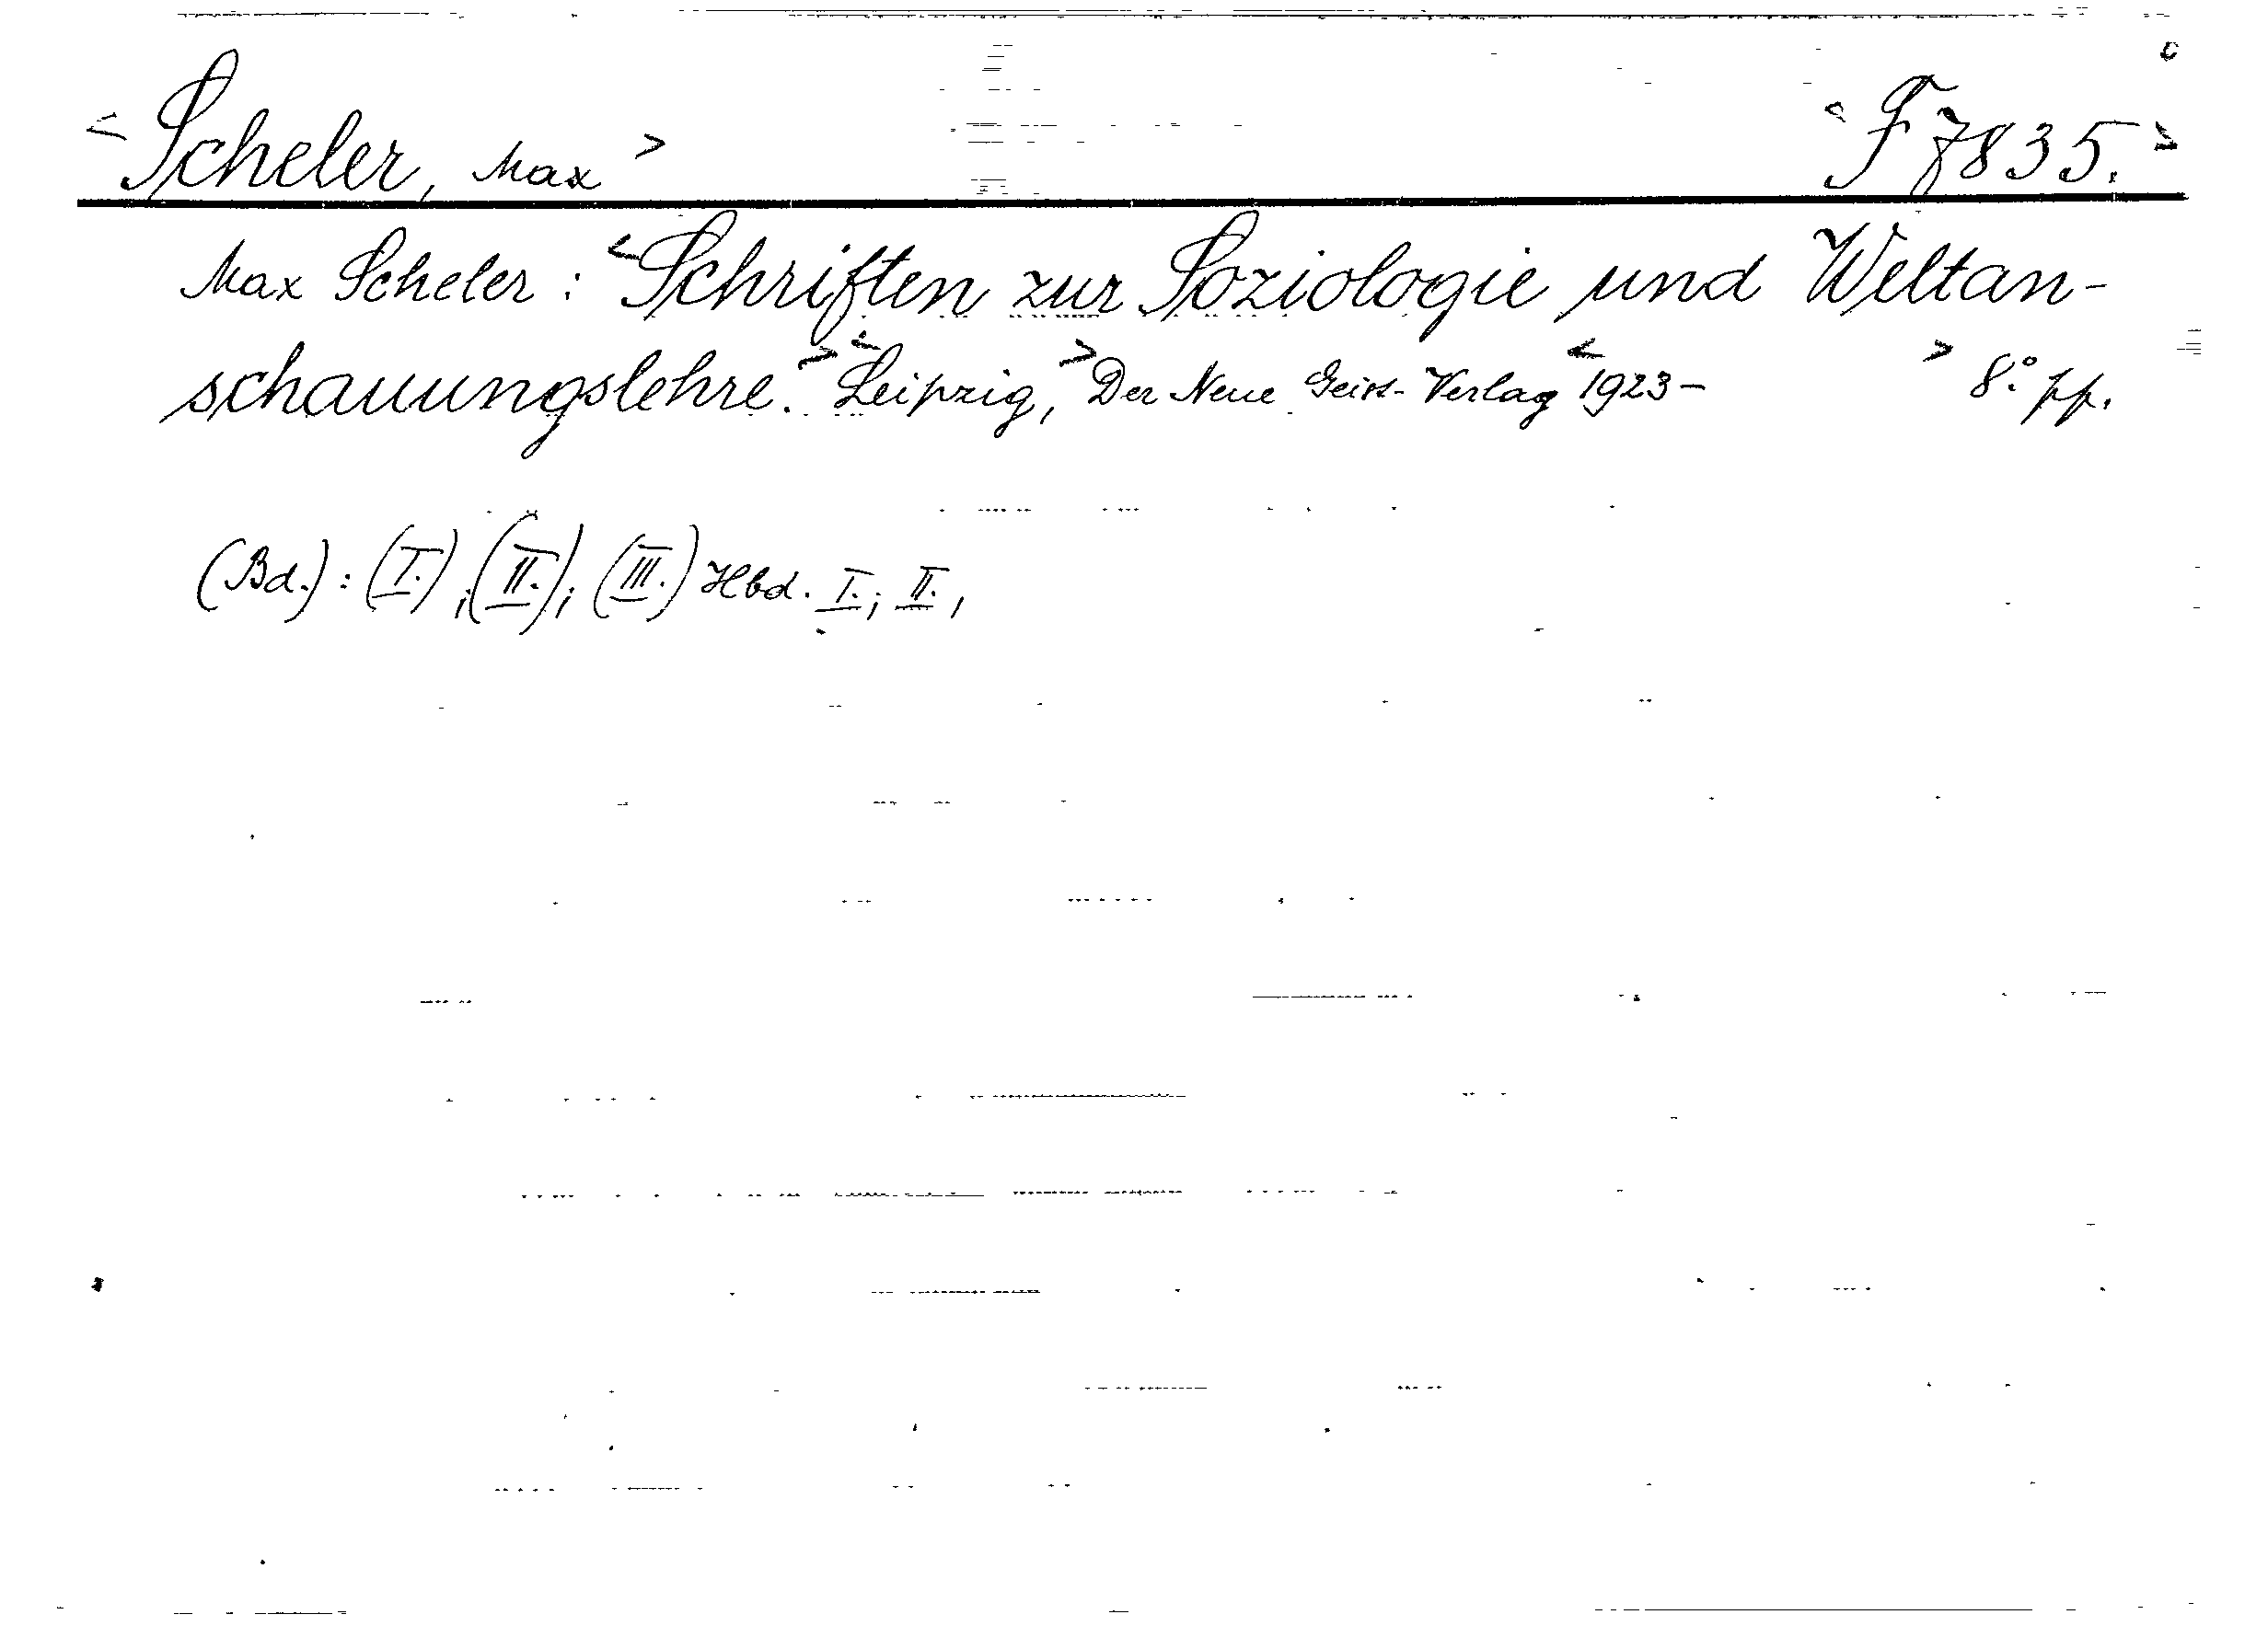 <Scheler, Max> <F 7835.>
Max Scheler: <Schriften zur Soziologie und Weltan-
schauungslehre.> <Leipzig,> Der Neue Geist-Verlag <1923- > 8° pp.
(Bd.): (I.), (II.), (III.) Hbd. I.; II.,